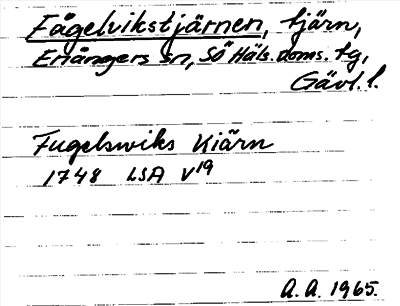 Fågelvikstjärnen, tjärn,
Enångers sn, Sö Häls. doms. tg,
Gävl. l.
Fugelswiks Kiärn
1748 LSA V19
A. A. 1965.